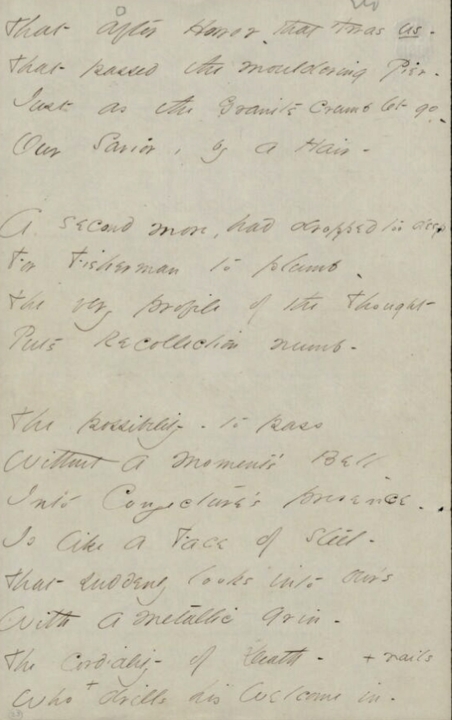 That after Horror that 'twas us -
That passed the mouldering Pier -
Just as the Granite crumb let go -
Our Savior, by a Hair -
A second more, had dropped too deep
For Fisherman to plumb -
The very profile of the Thought
Puts Recollection numb -
The possibility - to pass
Without a Moment's Bell
Into Conjecture's presence -
Is like a Face of Steel -
That suddenly looks into our's
With a metallic grin -
The Cordiality of Death - + nails
Who + drills his Welcome in -